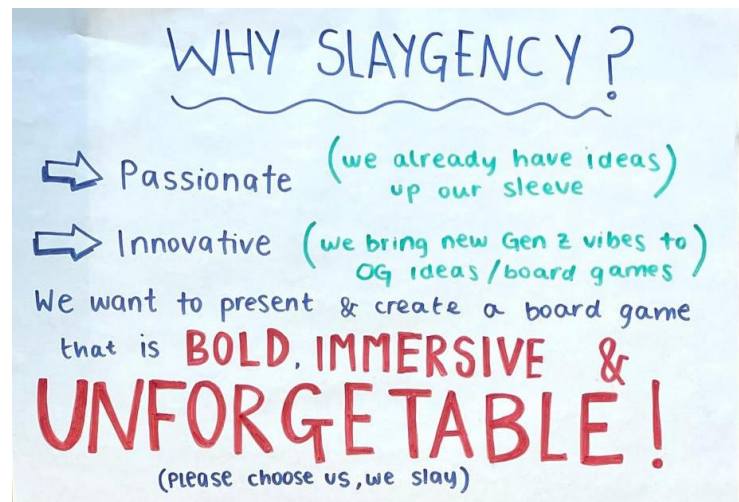 WHY SLAYGENCY?
Passionate (we already have ideas
up our sleeve)
Innovative (we bring new Gen Z vibes to
OG ideas/board games)
We want to present & create a board game
that is BOLD, IMMERSIVE &
UNFORGETABLE!
(Please choose us, we slay)